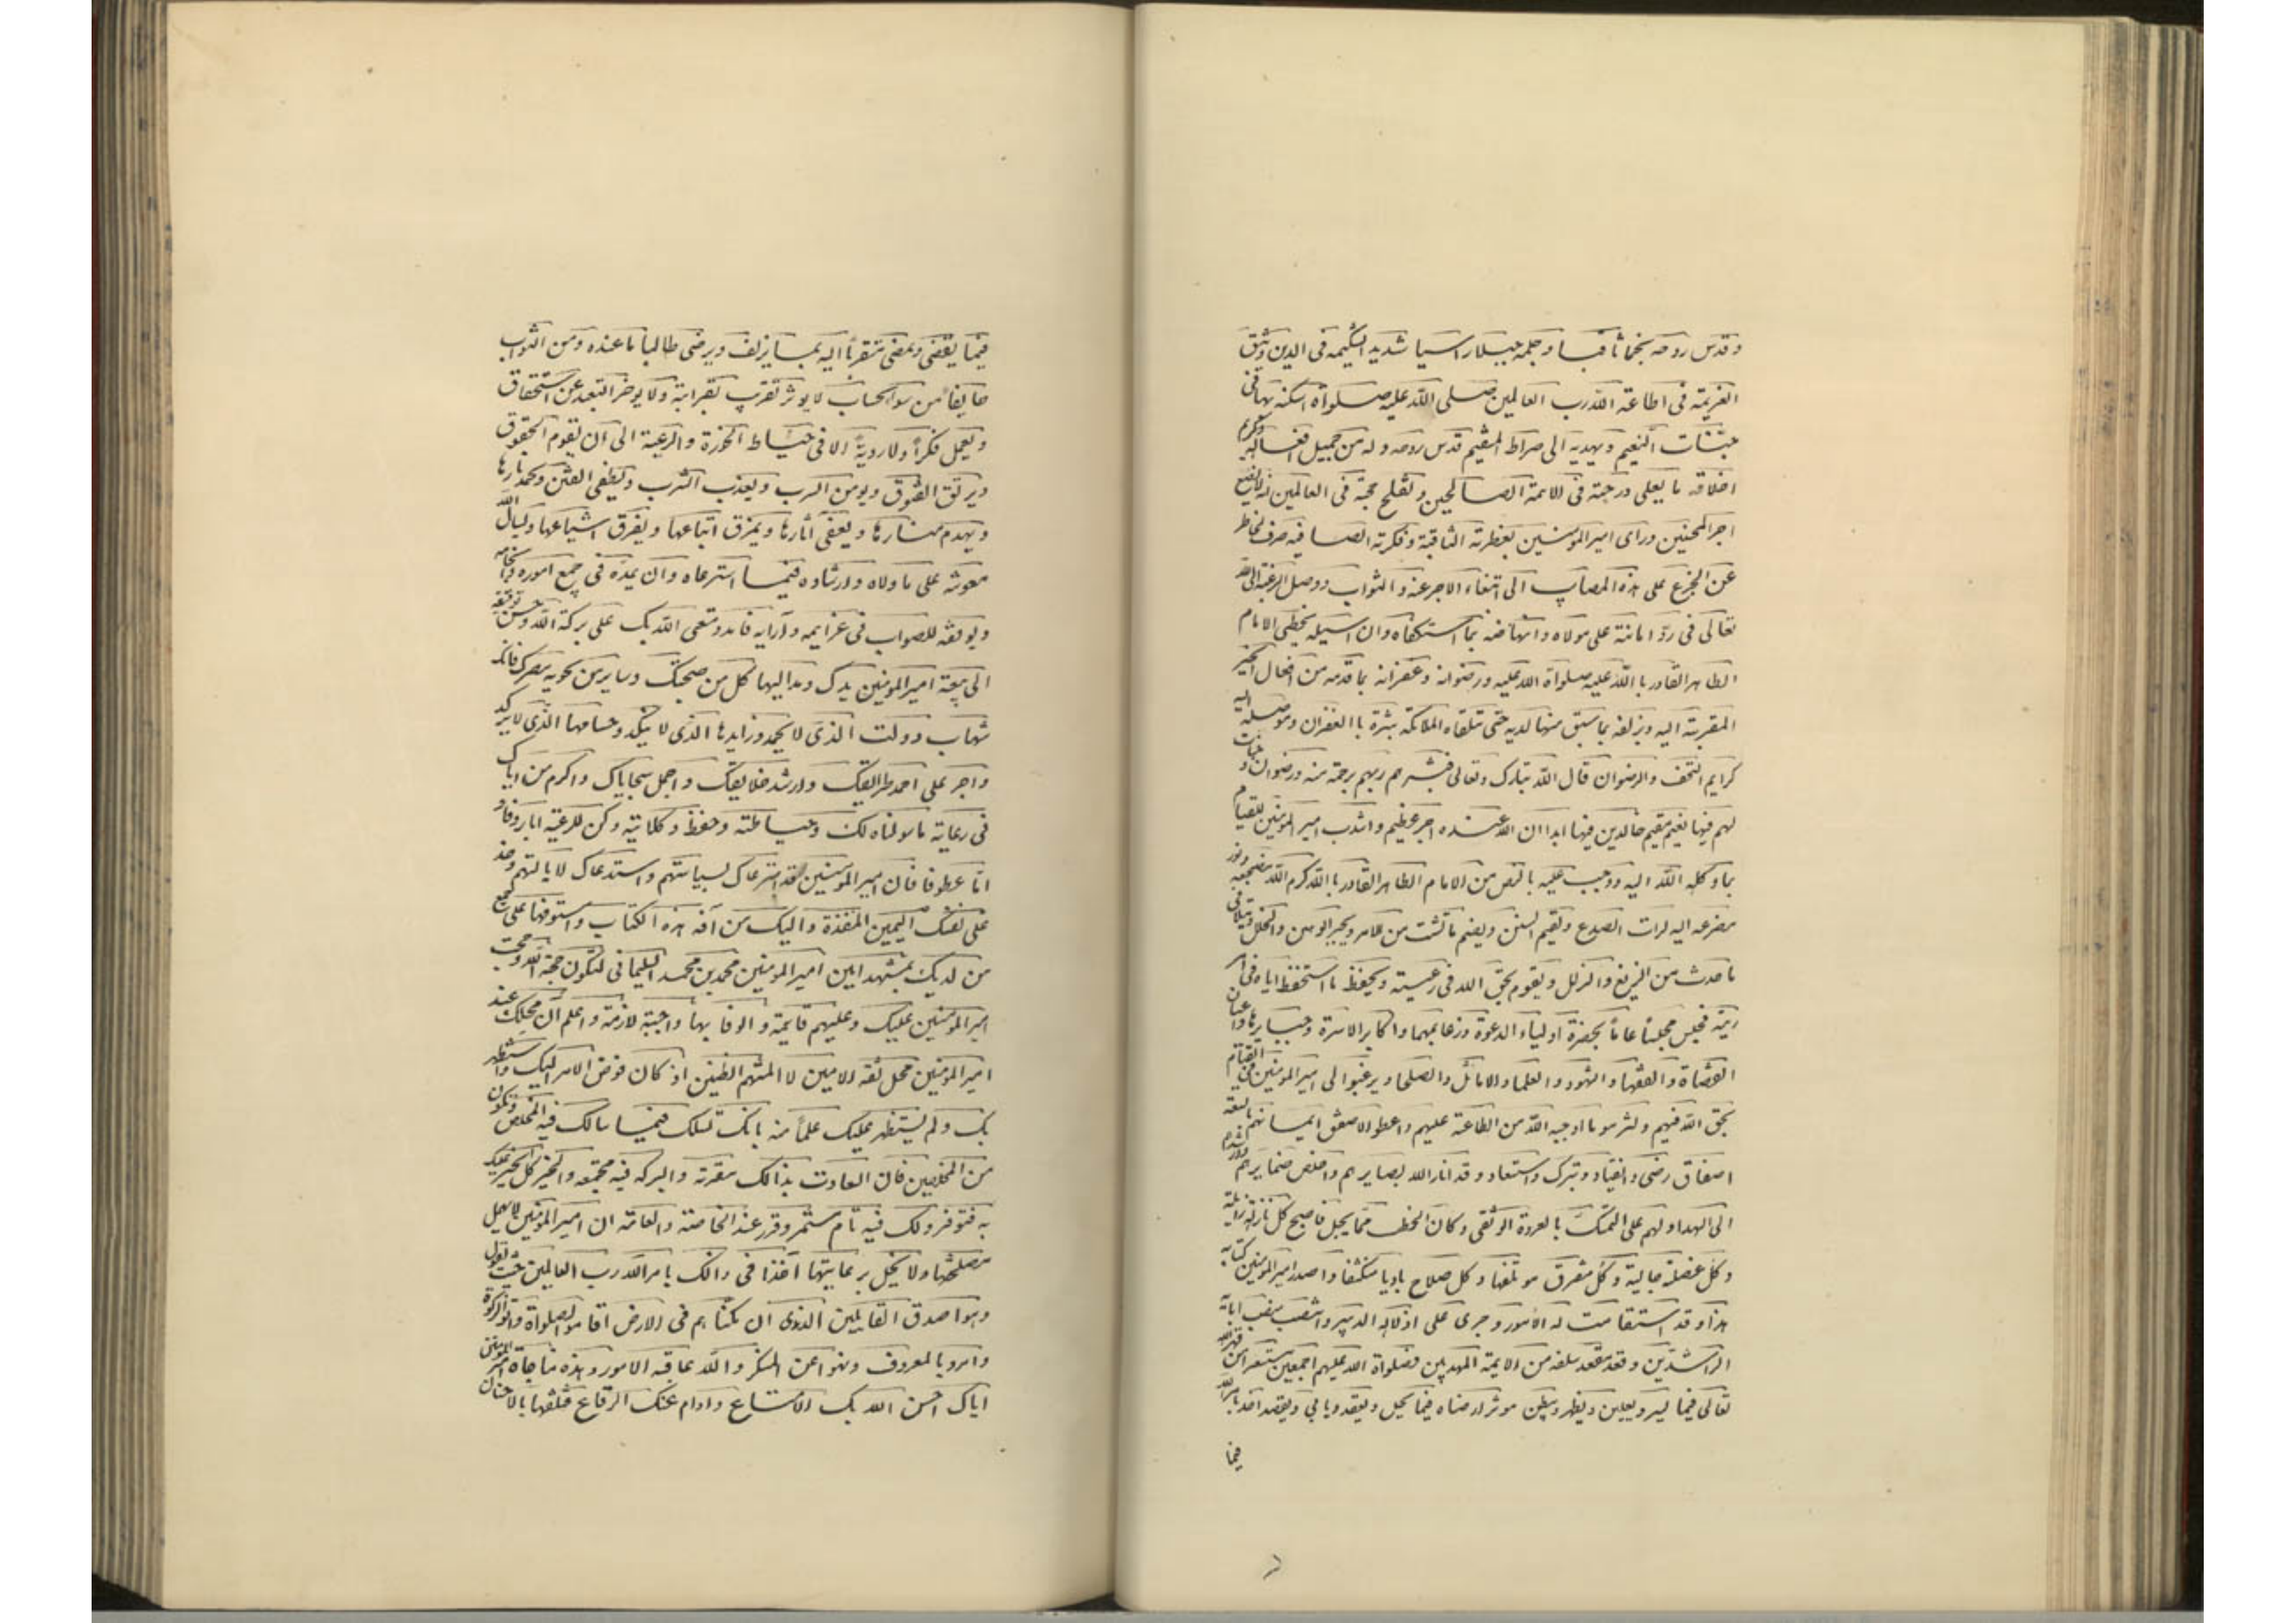 وقدس روحه نجما ثاقبا وحلمه جبلا راسيا شديد الشكيمه فى الدين وثيق
العزيمه فى اطاعة الله رب العالمين صلى الله عليه صلواة اسكنه بها فى
جنات النعيم ويهديه الى صراط المستقيم قدس روحه وله من جميل افعاله وكريم
اخلاقه ما يعلى درجته فى الائمة الصالحين ويفلح حجته فى العالمين انه لايضيع
اجر المحسنين وراى امير المؤمنين بفطرته الثاقبة وفكرته الصافيه صرف الخاطر
عن الجزع على هذه المصاب الى ابتغاء الاجر عنه والثواب ووصل الرغبة الى الله
تعالى فى ردّ امانته على مولاه وانهاضه بما استكفاه وان اسيله يخطى الامام
الطاهر القادر باالله عليه صلواة الله عليه ورضوانه وغفرانه بما قدمه من افعال الخير
المقربته اليه ويزلفه بما سبق منها لديه حتى تتلقاه الملائكه بشرة باالغفران وموصله اليه
كرايم التحف والرضوان قال الله تبارك وتعالى فبشرهم ربهم برحمة منه ورضوان وجنات
لهم فيها نعيم مقيم خالدين فيها ابدا ان الله عنده اجر عظيم وانتدب امير المؤمنين للقيام
بما وكله الله اليه ووجب عليه بالنص من الامام الطاهر القادر باالله كرم الله مضجعه ونور
مضرعه اليه لرات الصدع ويقيم السنن ويضم ما تشتت من الامر ويجبر الوهن والخلل ويتلافى
ما حدث من الزيغ والزلل ويقوم بحق الله فى رعيته ويحفظ ما استحفظ اياه فى امر
ريته فجلس مجلساً عاماً بحضرة اولياء الدعوة وزعايمها واكابر الاسرة وجبايرها واعيان
القضاة والفقها والشهود والعلما والاماثل والصلحا ويرغبوا الى امير المؤمنين فى القيام
بحق الله فيهم ولثرموا ما اوجبه الله من الطاعة عليهم واعطوا لاصفق ايمانهم بالبيعة
اصفاق رضى وانقياد وتبرك واستعاد وقد انار الله بصايرهم واخلص ضمايرهم وارشدهم
الى الهدا ولهم على التمسك بالعروة الوثقى وكان الخطب مما يجل فاصبح كل نازلة زايلة
وكل عضلة جالية وكل مفترق موتلفها وكل صلاح باديا منكشفا واصدر امير المؤمنين كتابه
هذا وقد استقامت له الامور وجرى على اذلاله التدبير وانتصب منصب ابائه
الراشدين وقعد مقعد سلفه من الائمة المهديين فصلواة الله عليهم اجمعين مستعرا من قهر الله
تعالى فيما يسر ويعلن ويظهر ويبطن موثرا رضاه فيما يحل ويعقد ويابى ويقصد اخذ بامر الله
فيما
فيما يقضى ويمضى متقرباً اليه بما يزلف ويرضى طالبا ما عنده ومن الثواب
خايفا من سوالحساب لا يوثر تقرب تقرابتة ولا يوخر التبعد عن استحقاق
ويعمل فكراً ولا رويةً الا فى حياط الحوزة والرعية الى ان يقوم الحقوق
ويرتق الفتوق ويومن السرب ويعذب الشرب ويطفى الفتن ويخمد نارها
ويهدم منارها ويعفى آثارها ويمزق اتباعها ويفرق اشياعها ويسال الله
معونته على ما ولاه وارشاده فيما استرعاه وان يمده فى جميع اموره وانحائه
ويوفقه للصواب فى عزايمه وآرايه فامدد متعى الله بك على بركة الله وحسن توفيقه
الى بيعة امير المؤمنين يدك ومد اليها كل من صحبتك وساير من تحويه مصرك فانك
شهاب دولت الذى لا يخمد وزايدها الذى لا ينكد وحسامها الذى لا يركد
واجر على احمد طرايقك وارشد خلايقك واجمل سجاياك واكرم من اياك
فى رعاية ما سولناه لك وحياطته وحفظ وكلائيته وكن للرعية ابا روفا و
اما عطوفا فان امير المؤمنين قد استرعاك لسياستهم واستدعاك لايالتهم وخذ
على نفسك اليمين المنفذة واليك من آفه هذه الكتاب واستوفها على جميع
من لديك بمشهد ابين امير المومنين محمد بن محمد السليمانى لتكون حجة الله وحجت
امير المومنين عليك وعليهم قايمة والوفا بها واجبة لازمة واعلم ان محلك عند
امير المومنين محل ثقه الامين لا المتهم الظنين اذ كان فوض الامر اليك واستظهر
بك ولم يستظهر عليك علماً منه بانك تسلك فيما سالك فيه المخلص وتكون
من المخلصين فان العادت بذالك مقرته والبركه فيه مجتمعه والخير كل الخير عليك
به فتوفر ولك فيه تام مستمر وقرر عند الخاصة والعامة ان امير المؤمنين لا يهمل
مصلحتها ولا يخل برعايتها آخذا فى ذالك بامر الله رب العالمين حيث يقول
وهوا صدق القايلين الذين ان مكناهم فى الارض اقاموا لصلواة واتوا الزكوة
وامروا بالمعروف ونهوا عن المنكر والله عاقبة الامور وهذه مناجاة امير المؤمنين
اياك احسن الله بك الامتناع وادام عنك الرقاع فتلقها بالاحسان